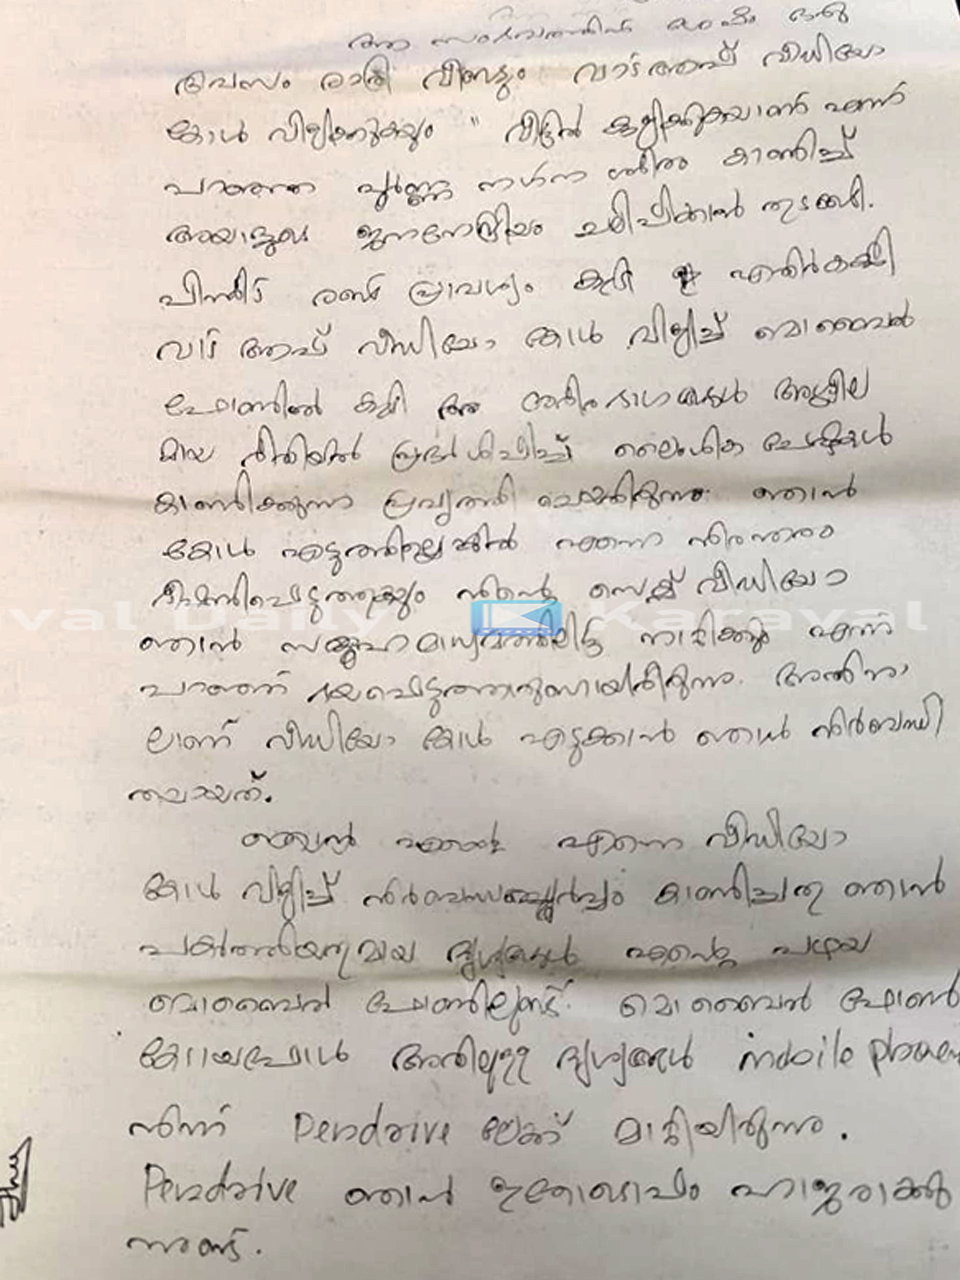 ആ സംഭവത്തിന് ശേഷം ഒരു
ദിവസം രാത്രി വീണ്ടും വാട്ആപ്പ് വീഡിയോ
കോൾ വിളിക്കുകയും " വീട്ടിൽ കുളിക്കുകയാണ് എന്ന്
പറഞ്ഞ പൂർണ്ണ നഗ്ന ശരീരം കാണിച്ച്
അയാളുടെ ജനനേന്ദ്രിയം ചലിപ്പിക്കാൻ തുടങ്ങി.
പിന്നീട് രണ്ട് പ്രാവശ്യം കൂടി
വാട് ആപ്പ് വീഡിയോ കോൾ വിളിച്ച് മൊബൈൽ
ഫോണിൽ കൂടി ശരീരഭാഗങ്ങൾ അശ്ലീല
മായ രീതിയിൽ പ്രദർശിപ്പിച്ച് ലൈംഗിക ചേഷ്ടകൾ
കാണിക്കുന്ന പ്രവൃത്തി ചെയ്തിരുന്നു. ഞാൻ
കോൾ എടുത്തില്ലെങ്കിൽ എന്നെ നിരന്തരം
ഭീഷണിപെടുത്തുകയും നിന്റെ സെക്സ് വീഡിയോ
ഞാൻ സമൂഹമാധ്യമത്തിലിട്ട് നാറ്റിക്കും എന്ന്
പറഞ്ഞ് ഭയപെടുത്താറുണ്ടായിരുന്നു. അതിനാ
ലാണ് വീഡിയോ കോൾ എടുക്കാൻ ഞാൻ നിർബന്ധി
തയായത്.
എന്നെ വീഡിയോ
കോൾ വിളിച്ച് നിർബന്ധപൂർവ്വം കാണിച്ചതു ഞാൻ
പകർത്തിയതുമായ ദൃശ്യങ്ങൾ എന്റെ പഴയ
മൊബൈൽ ഫോണിലുണ്ട്. മൊബൈൽ ഫോൺ
കേടായപ്പോൾ അതിലുള്ള ദൃശ്യങ്ങൾ mobile phone
നിന്ന് Pendrive ലേക്ക് മാറ്റിയിരുന്നു.
Pendrive ഞാൻ ഇതോടൊപ്പം ഹാജരാക്കു
ന്നുണ്ട്.
val Daily Karaval